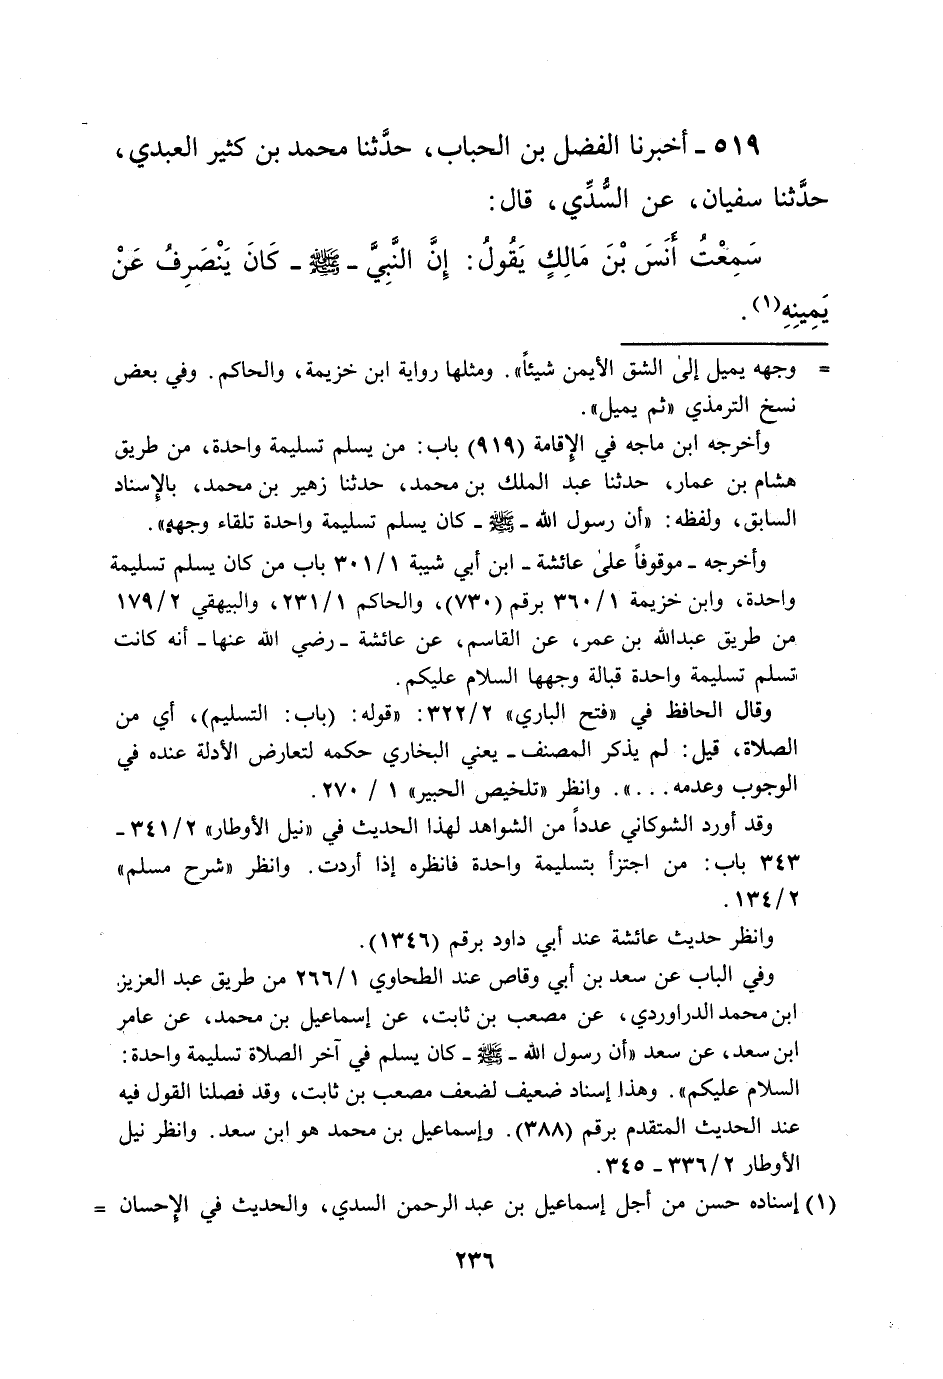 ٥١٩ ـ أخبرنا الفضل بن الحباب، حدَّثنا محمد بن كثير العبدي،
حدَّثنا سفيان، عن السُّدِّي، قال:
سَمِعْتُ أَنَسَ بْنَ مَالِكٍ يَقُولُ: إِنَّ النَّبِيَّ ـ ﷺ ـ كَانَ يَنْصَرِفُ عَنْ
يَمِينِهِ(١).
= وجهه يميل إلىٰ الشق الأيمن شيئاً». ومثلها رواية ابن خزيمة، والحاكم. وفي بعض
نسخ الترمذي «ثم يميل».
وأخرجه ابن ماجه في الإقامة (٩١٩) باب: من يسلم تسليمة واحدة، من طريق
هشام بن عمار، حدثنا عبد الملك بن محمد، حدثنا زهير بن محمد، بالإسناد
السابق، ولفظه: «أن رسول الله ـ ﷺ ـ كان يسلم تسليمة واحدة تلقاء وجهه».
وأخرجه ـ موقوفاً علىٰ عائشة ـ ابن أبي شيبة ٣٠١/١ باب من كان يسلم تسليمة
واحدة، وابن خزيمة ٣٦٠/١ برقم (٧٣٠)، والحاكم ٢٣١/١، والبيهقي ١٧٩/٢
من طريق عبدالله بن عمر، عن القاسم، عن عائشة ـ رضي الله عنها ـ أنه كانت
تسلم تسليمة واحدة قبالة وجهها السلام عليكم.
وقال الحافظ في «فتح الباري» ٣٢٢/٢: «قوله: (باب: التسليم)، أي من
الصلاة، قيل: لم يذكر المصنف ـ يعني البخاري حكمه لتعارض الأدلة عنده في
الوجوب وعدمه ...». وانظر «تلخيص الحبير» ١ / ٢٧٠.
وقد أورد الشوكاني عدداً من الشواهد لهذا الحديث في «نيل الأوطار» ٣٤١/٢ ـ
٣٤٣ باب: من اجتزأ بتسليمة واحدة فانظره إذا أردت. وانظر «شرح مسلم»
١٣٤/٢.
وانظر حديث عائشة عند أبي داود برقم (١٣٤٦).
وفي الباب عن سعد بن أبي وقاص عند الطحاوي ٢٦٦/١ من طريق عبد العزيز
ابن محمد الدراوردي، عن مصعب بن ثابت، عن إسماعيل بن محمد، عن عامر
ابن سعد، عن سعد «أن رسول الله ـ ﷺ ـ كان يسلم في آخر الصلاة تسليمة واحدة:
السلام عليكم». وهذا إسناد ضعيف لضعف مصعب بن ثابت، وقد فصلنا القول فيه
عند الحديث المتقدم برقم (٣٨٨). وإسماعيل بن محمد هو ابن سعد. وانظر نيل
الأوطار ٣٣٦/٢ ـ ٣٤٥.
(١) إسناده حسن من أجل إسماعيل بن عبد الرحمن السدي، والحديث في الإحسان =
٢٣٦